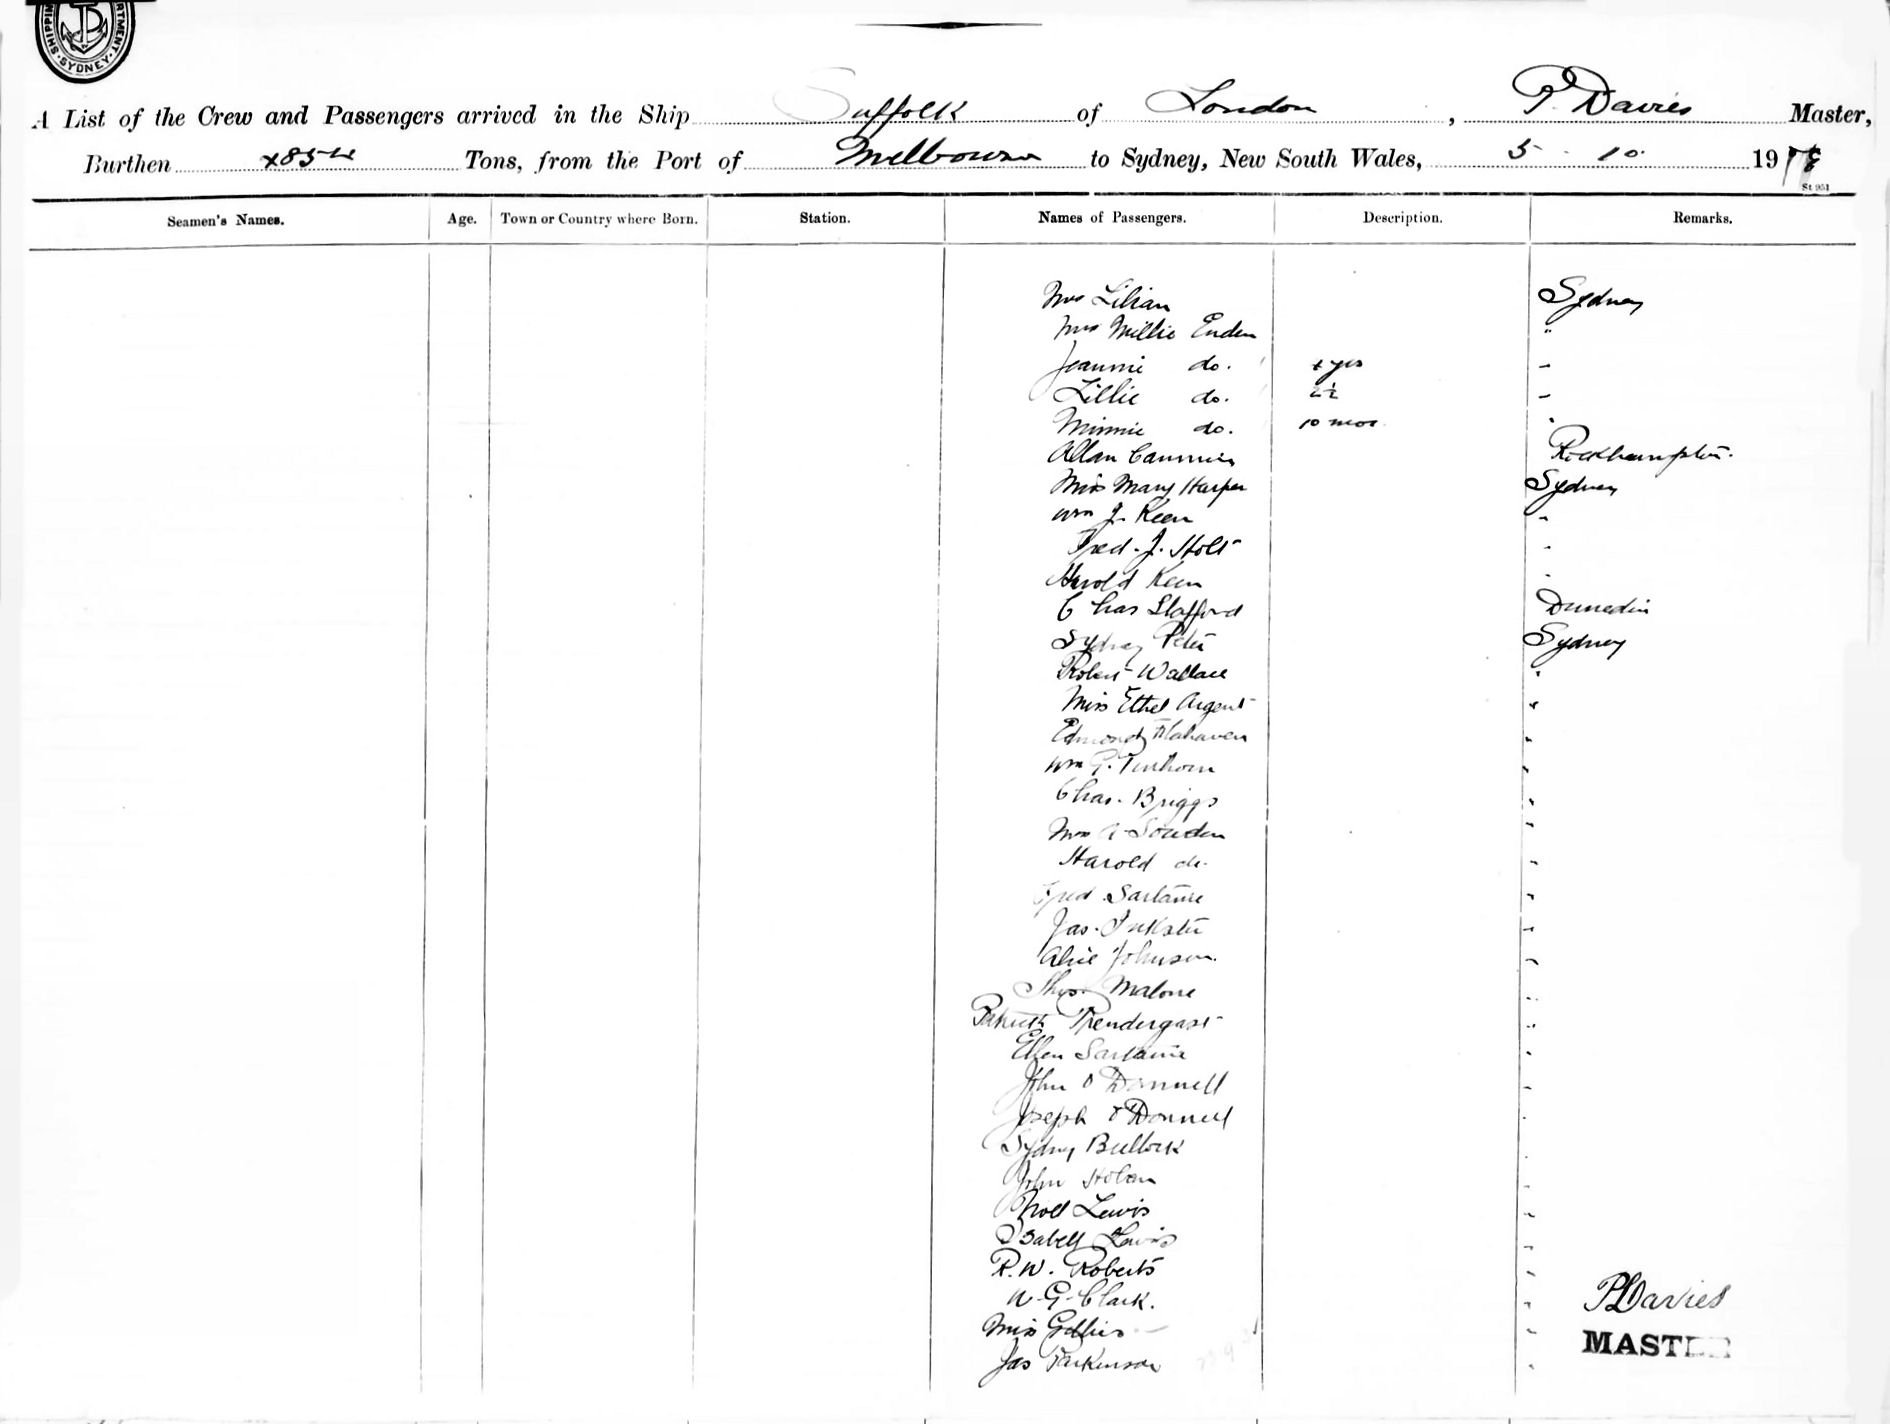 SHIPPIN
RTMENT
SYDNEY
A List of the Crew and Passengers arrived in the Ship Suffolk of London, P. Davies Master,
Burthen Tons, from the Port of Melbourne to Sydney, New South Wales, 5 - 10. 19
St 951
Seamen's Names. Age. Town or Country where Born. Station. Names of Passengers. Description. Remarks.
Mrs Lilian Sydney
Mrs Millie Enden "
Jeannie do. 4 yrs "
Lillie do. 2½ "
Minnie do. 10 mos "
Allan Rockhampton.
Miss Mary Harper Sydney
Wm J. Keen "
Fred. J. Holt "
Harold Keen "
Chas Stafford Dunedin
Sydney Peter Sydney
Robert Wallace "
Miss Ethel Argent "
Edmond "
Wm G. "
Chas. Briggs "
Mrs A Sowden "
Harold do. "
Fred Sartaine "
Jas. Inkster "
Alice Johnson. "
Thos. Malone "
Patrick Prendergast "
Ellen Sartaine "
John O'Donnell "
Joseph O'Donnell "
Sydney Bullock "
John Hoban "
Noel Lewis "
Isabell Lewis "
R. W. Roberts "
W. G. Clark. "
Miss Gillies "
Jas Parkinson "
P Davies
MASTER